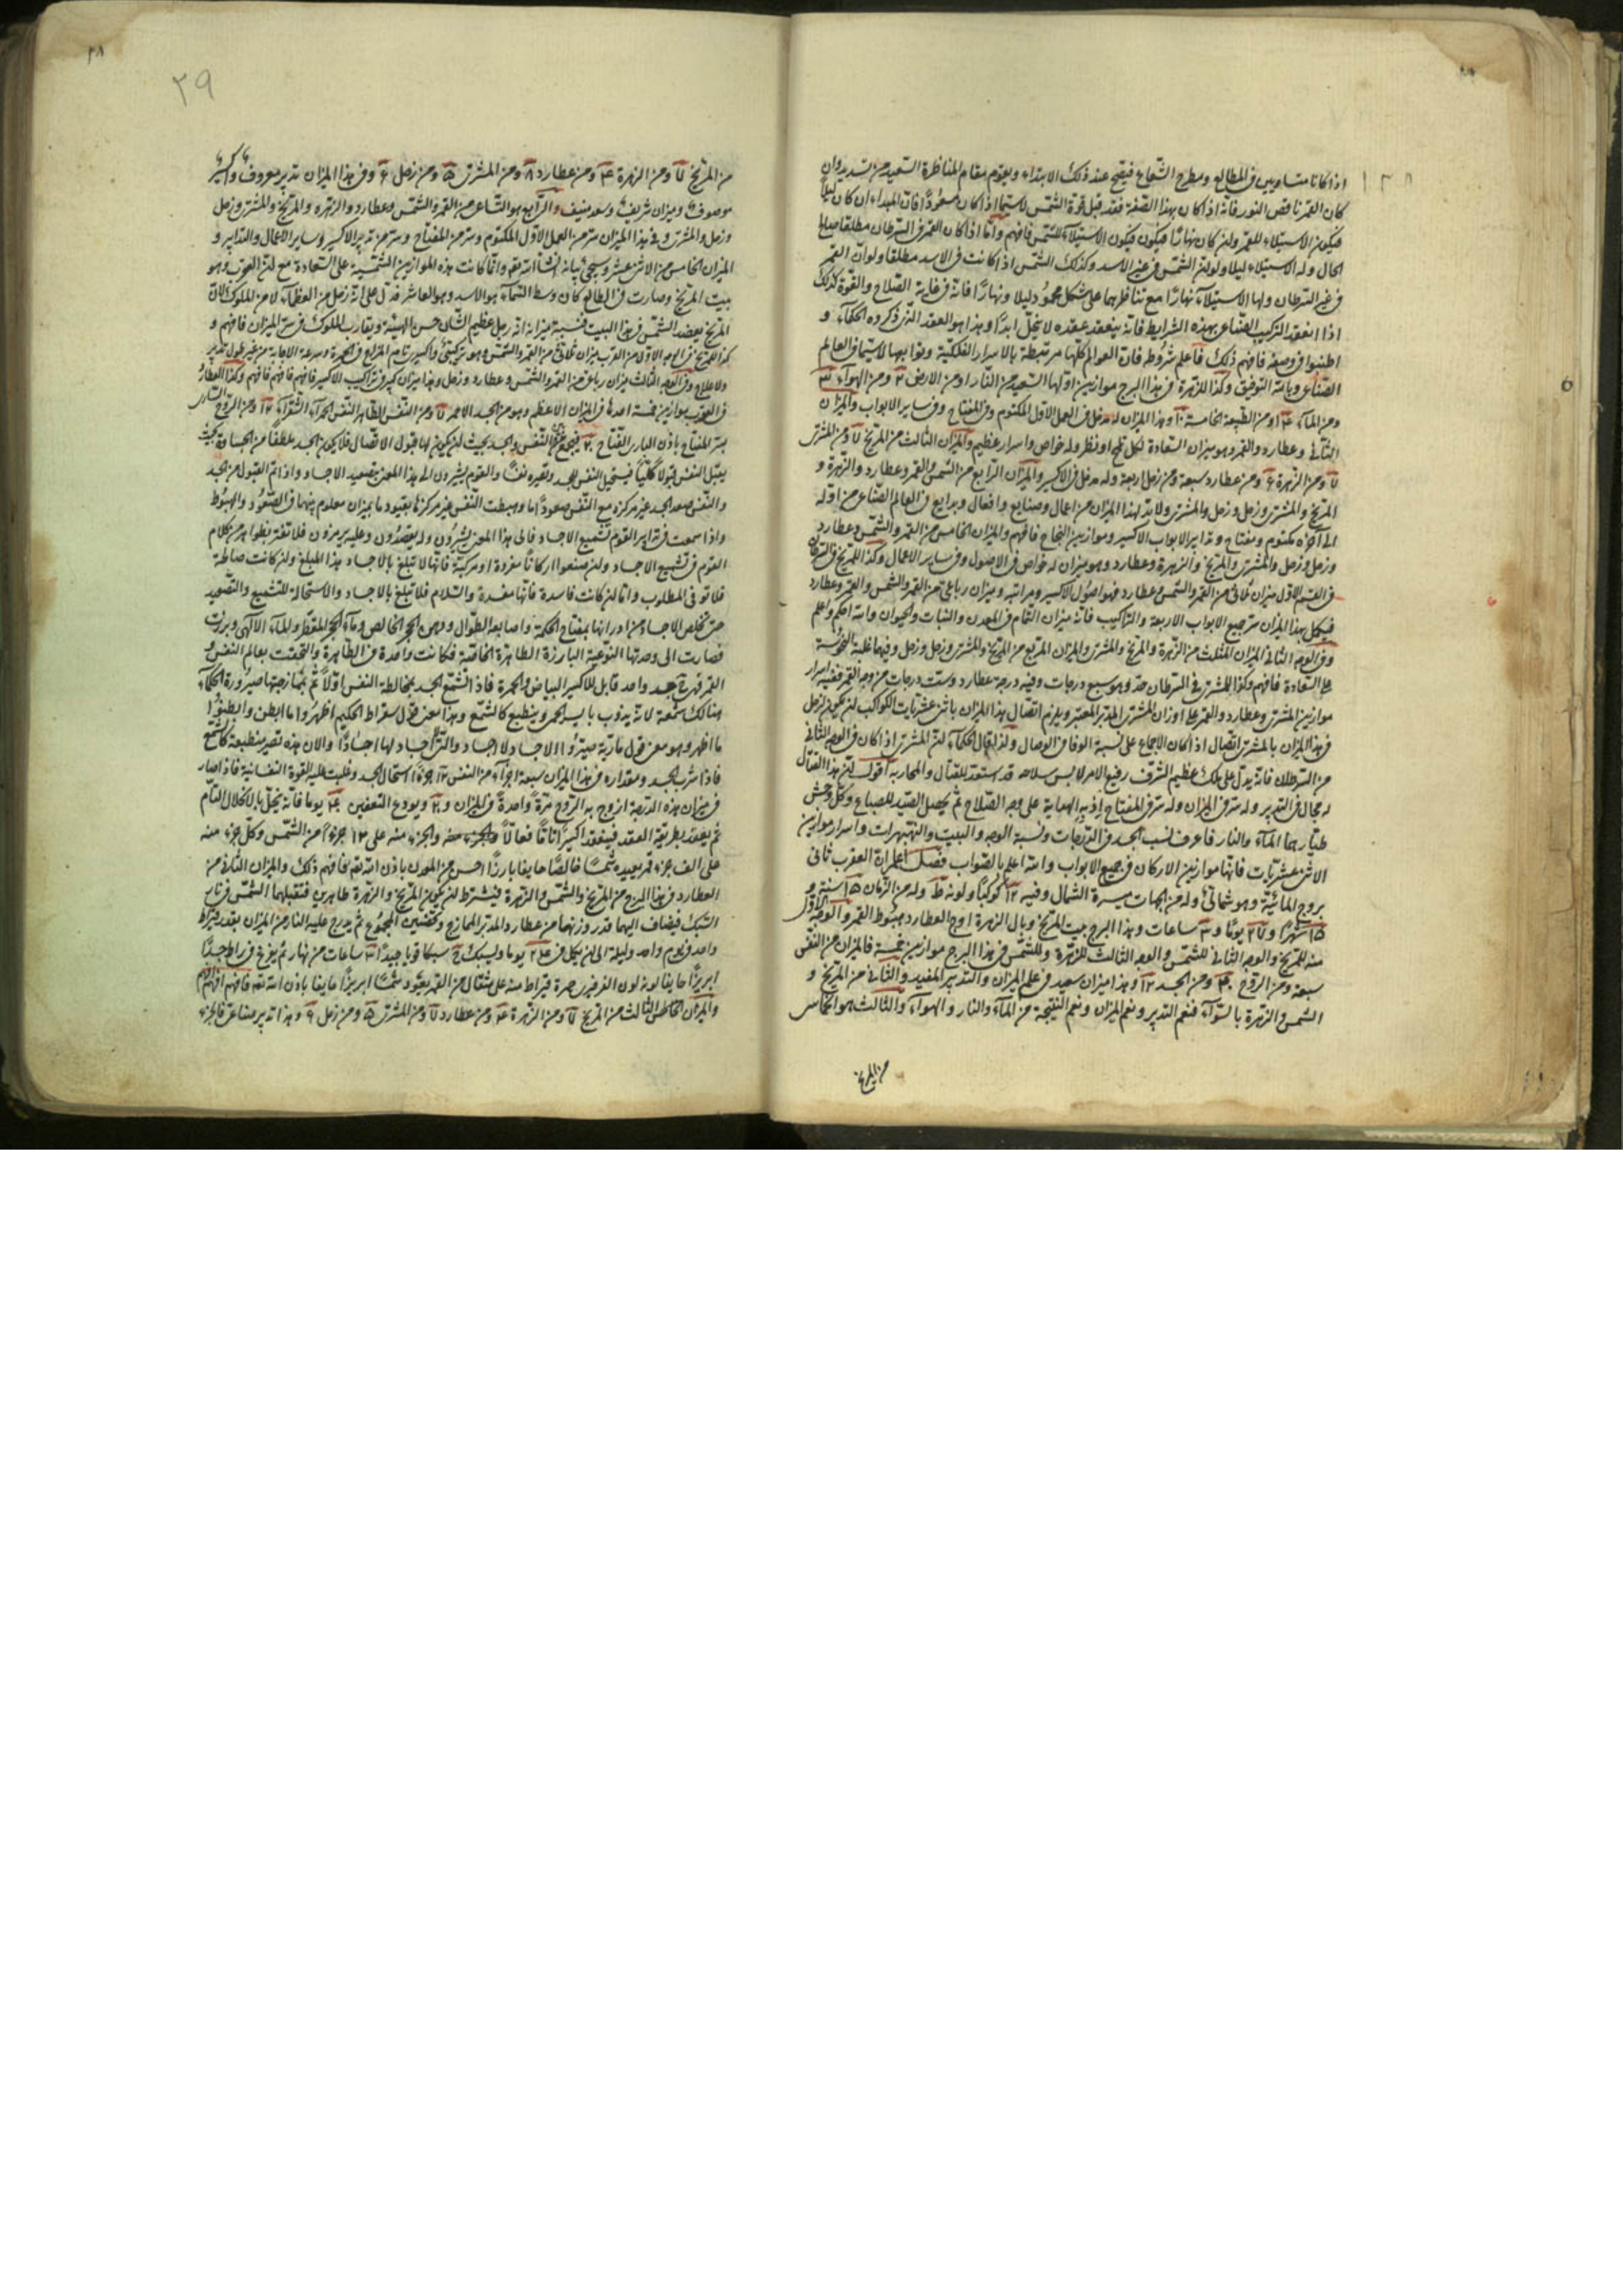 اذا كانا متساويين فى المطالع ومطرح الشعاع فيصح عند ذلك الابتداء ويقوم مقام المناظرة السعيد من تسديد وان
كان القمر ناقص النور فانه اذا كان بهذا الصفة فقد قبل قوة الشمس لاسيما اذا كان مسعودا فان المبداء ان كان ليلا
فيكون الاستيلاء للقمر وان كان نهارا فيكون الاستيلاء للشمس فافهم واما اذا كان القمر فى السرطان مطلقا صالح
الحال وله الاستيلاء ليلا ولو لان الشمس فى غير الاسد وكذلك الشمس اذا كانت فى الاسد مطلقا ولو ان القمر
فى غير السرطان ولها الاستيلاء نهارا مع تناظرهما على شكل محمود ليلا ونهارا فانه فى غاية الصلاح والقوة كذلك
اذا انعقد التركيب الصناعى بهذه الشرايط فانه ينعقد عقده لا ينحل ابدا وهذا هو العقد الذى ذكروه الحكماء و
اطنبوا فى وصفه فافهم ذلك فاعلم شروطه فان العوالم كلها مرتبطة بالاسرار الفلكية وتوابها لاسيما فى العالم
الصناعى وبالله التوفيق وكذا للزهرة فى هذا البرج موازين اولها السعيد من النار ا ومن الارض ٢ ومن الهواء ٣
ومن الماء ٤ ومن الطبيعة الخامسة ١٠ وهذا الميزان له مدخل فى العمل الاول المكتوم وفى المفتاح وفى ساير الابواب والميزان
الثانى وعطارد والقمر وهو ميزان السعادة لكل وله خواص واسرار عظيم والميزان الثالث من المريخ ٧ ومن المشترى
٧ ومن الزهرة ٦ ومن عطارد سبعة ومن زحل اربعة وله مدخل فى الاكسير والميزان الرابع من الشمس والقمر وعطارد والزهرة و
المريخ والمشترى وزحل وزحل والمشترى ولابد لهذا الميزان من اعمال وصنايع وافعال وبدايع فى العالم الصناعى من اوله
الى آخره مكتوم ومفتاح وتدابير الابواب الاكسير وموازين النجاح فافهم والميزان الخامس من القمر والشمس وعطارد
وزحل وزحل والمشترى والمريخ والزهرة وعطارد وهو ميزان له خواص فى الاصول وفى ساير الاعمال وكذا للمريخ فى السرطان
فى القسم الاول ميزان ثلاثى من القمر والشمس وعطارد فهو اصول الاكسير ومراتبه وميزان رباعى من القمر والشمس والقمر وعطارد
فيكمل بهذا الميزان سر جميع الابواب الاربعة والتراكيب فانه ميزان التمام فى المعدن والنبات والحيوان والله احكم واعلم
وفى الوجه الثانى الميزان المثلث من الزهرة والمريخ والمشترى والميزان المربع من المريخ والمشترى وزحل وزحل وفيهما غلبة النحوسة
على السعادة فافهم وكذا للمشترى فى السرطان حد وهو سبع درجات وفيه درجة عطارد وست درجات من وجه القمر ففيه اسرار
موازين المشترى وعطارد والقمر على اوزان المشترى المدبر المعتبر ويلزم اتصال بهذا الميزان باثنى عشريات الكواكب لئن يكون لزحل
فى هذا الميزان بالمشترى اتصال اذا كان الاجماع على نسبة الوفا فى الوصال ولذا قال الحكماء لئن المشترى اذا كان فى الوجه الثانى
من السرطان فانه يدل على ملك عظيم الشرف رفيع الامر لابس سلاحه قد استعد للقتال والمحاربه اقول لئن هذا القتال
له مجال فى التدبير وله سر فى الميزان وله سر فى المفتاح اذ به الهداية على وجه الصلاح ثم يحصل الصيد للصباع وكل وحش
طيار هما الماء والنار فاعرف لنسب الجسد فى الدرجات ونسبة الوجه والبيت والنهبهرات واسرار موازين
الاثنى عشريات فانها موازين الاركان فى جميع الابواب والله اعلم بالصواب فصل اعلم ان العقرب ثانى
بروج المائية وهو شمالى وله من الجهات ميسرة الشمال وفيه ١٢ كوكبا ولونه ط وله من الزمان ١٥ سنة و
١٥ شهرا و ٢٧ يوما و ٣ ساعات وهذا البرج بيت المريخ وبال الزهرة اوج العطارد هبوط القمر والوجه الاول
منه للمريخ والوجه الثانى للشمس والوجه الثالث للزهرة وللشمس فى هذا البرج موازين خمسة فالميزان من النفس
سبعة ومن الروح ٤٠ ومن الجسد ١٢ وهذا ميزان سعيد فى علم الميزان والتدبير المفيد والثانى من المريخ و
الشمس والزهرة بالسواء فنعم التدبير ونعم الميزان ونعم النتيجة من الماء والنار والهواء والثالث هو الخامس
من المريخ
٢٩
من المريخ ٧ ومن الزهرة ٤ ومن عطارد ٨ ومن المشترى ٥ ومن زحل ٦ وفى هذا الميزان تدبير معروف واكسير
موصوف وميزان شريف وسعد منيف والرابع هو التساعى من القمر والشمس وعطارد والزهره والمريخ والمشترى وزحل
وزحل والمشترى وفى هذا الميزان سر من العمل الاول المكتوم وسر من المفتاح وسر من تدبير الاكسير وساير الاعمال والتدابير و
الميزان الخامس من الاثنى عشر وسيجئ بيانه انشاء الله تعالى وانما كانت هذه الموازين الشمسية على السعادة مع لئن العقرب وهو
بيت المريخ وصارت فى الطالع كان وسط السماء هو الاسد وهو العاشر فدل على انه رجل من العظماء لا من الملوك لان
المريخ يعضد الشمس فى هذا البيت فنسبة ميزانه انه رجل عظيم الشان حسن الهيئة ويقارب الملوك فى سر الميزان فافهم و
كذا للمريخ فى الوجه الاول من العقرب ميزان ثلاثى من القمر والشمس وهو تركيبى واكسير تام المزاج فى الحمرة وسرعة الاجابة من غير طول تدبير
ولا علاج وفى الوجه الثالث ميزان رباعى من القمر والشمس وعطارد وزحل وهذا ميزان كبير فى تراكيب الاكسير فافهم فافهم فافهم وكذا العطارد
فى العقرب موازين خمسة احدها فى الميزان الاعظم وهو من الجسد الاحمر ٧ ومن النفس للطاهر النفس الحمراء الشقراء ١٢ ومن الروح السارى
بسر المفتاح باذن البارى الفتاح ٢٠ فيجمع النفس والجسد بحيث لئن يكون لها قبول الاتصال فلا يكون الجسد ملطفا من الجسادة بحيث
يقبل النفس قبولا كليا فيستحيل النفس للجسد وتصيره نفسا والقوم يشيرون الى هذا المعنى بتصعيد الاجساد واذا تم القبول من الجسد
والنفس صعد الجسد عن مركزه مع النفس صعودا ما وهبطت النفس عن مركزها بقيود ما بميزان معلوم بينهما فى الصعود والهبوط
واذا سمعت فى تدابير القوم تشميع الاجساد فالى هذا المعنى يشيرون وله يقصدون وعليه يرمزون فلا تغتر بظواهر من كلام
القوم فى تشميع الاجساد ولئن صنعوا اركانا مفردة او مركبة فانها لا تبلغ بالاجساد هذا المبلغ ولئن كانت صالحة
فلا توفى المطلوب واما لئن كانت فاسدة فانها مفسدة والسلام فلا تبلغ بالاجساد والاستحالة للتشميع والتصعيد
حتى تخلص الاجساد من ادرانها بمفتاح الحكمة واصابعه الطوال ودهن الحجر الخالص وماء الحجر المقطر والماء الالهى وبرزت
فصارت الى وحدتها النوعية البارزة الطاهرة الخاصية فكانت واحدة فى الظاهرة والتحقت بعالم النفس و
القمر فهى جسد واحد قابل للاكسير البياض والحمرة فاذا تشمع الجسد بمخالطة النفس اولا ثم بممازجتها صيرورة الحكماء
هنالك شمعة لانه يذوب بايسر الحمى وينطبع كالشمع وهذا معنى قول سقراط الحكيم اظهروا ما ابطن وابطنوا
ما اظهر وهو معنى قول مارية صيروا الاجساد لا اجساد والتى لا اجساد لها اجسادا والان هذه تصير منطبعة كالشمع
فاذا شرب الجسد ومقداره فى هذا الميزان سبعة اجزاء من النفس ١٢ جزءا استحال الجسد وغلبت عليه القوة النفسانية فاذا صار
فى ميزان هذه المرتبة ازوج به الروح مرة واحدة فى الميزان و ٢٠ ويودع التعفين ٤٠ يوما فانه ينحل بالانحلال التام
ثم يعقد بطريقة العقد فينعقد اكسيرا تاما فعالا والجزء منه على ١٢ جزءا من الشمس وكل جزء منه
على الف جزء قمر يعيده شمسا خالصا حايفا بارزا احسن من المعدن باذن الله تعالى فافهم ذلك والميزان الثانى من
العطارد فى هذا البرج من المريخ والشمس والزهرة فيشترط لئن يكون المريخ والزهرة طاهرين فتقبلهما الشمس فى نار
السبك فيضاف اليهما قدر وزنهما من عطارد المدبر الممازج وتحضين المجموع ثم يدرج عليه النار من الميزان بقدر قيراط
واحد فى يوم واحد وليلة الى لئن يكمل فى ٢٤ يوما ويسبك فى سبكا قويا جيدا ٣ ساعات من نهار ثم يفرغ فى راط جسدا
ابريزا حايفا لونه لون الفرفير حمرة قيراط منه على مثقال من القمر يعود شمسا ابريزا حايفا باذن الله تعالى فافهم افهم
والميزان الثالث من المريخ ٧ ومن الزهرة ٤ ومن عطارد ٧ ومن المشترى ٥ ومن زحل ٦ وهذا تدبير صناعى فالجزء